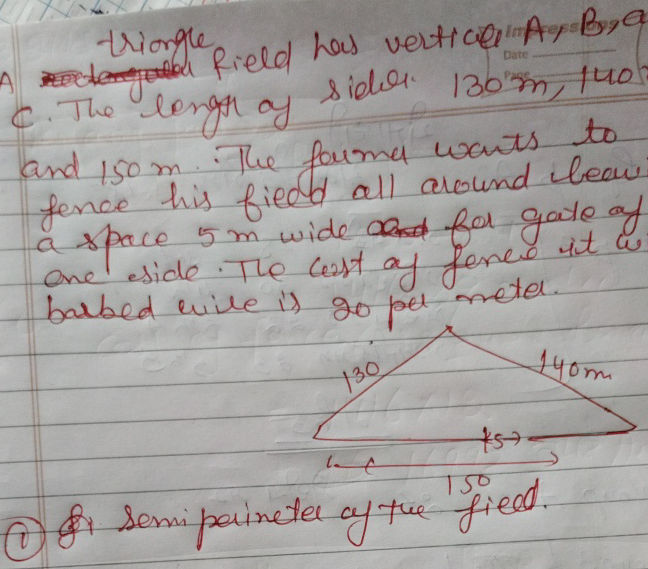 triangle
A field has vertices A, B, &
C. The lengh of sides. 130 m, 140
and 150 m. The farmer wants to
fence his field all around leav
a space 5 m wide for gate of
one side. The cost of fence it w
barbed wire is 20 per meter.
130
140m
5
150
① semi perimeter of the field.
Date